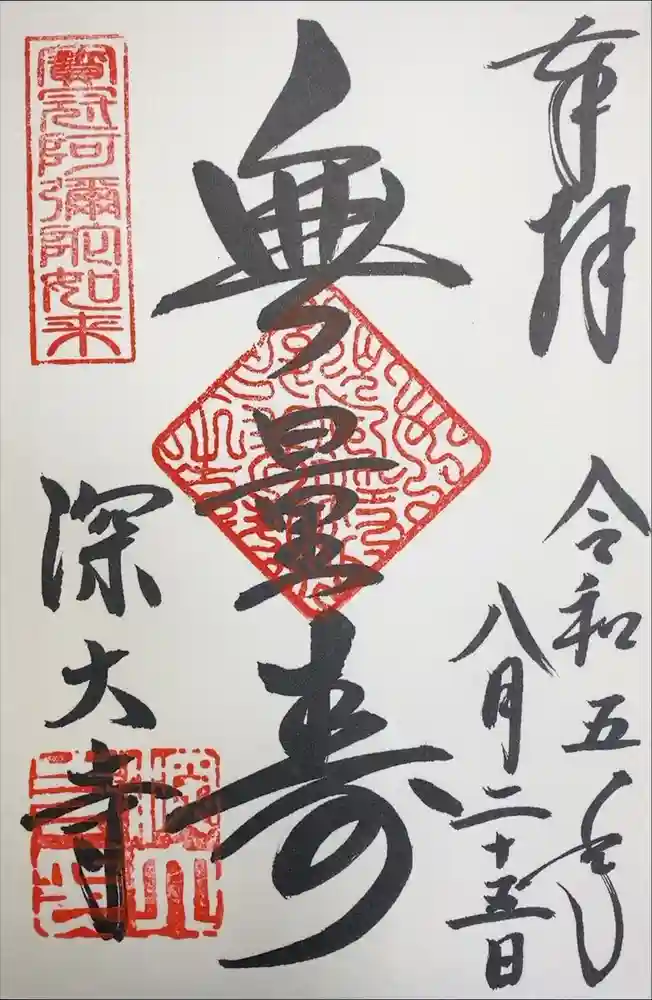 奉拝
令和五年
八月二十五日
無量寿
寳冠阿彌陀如来
深大寺